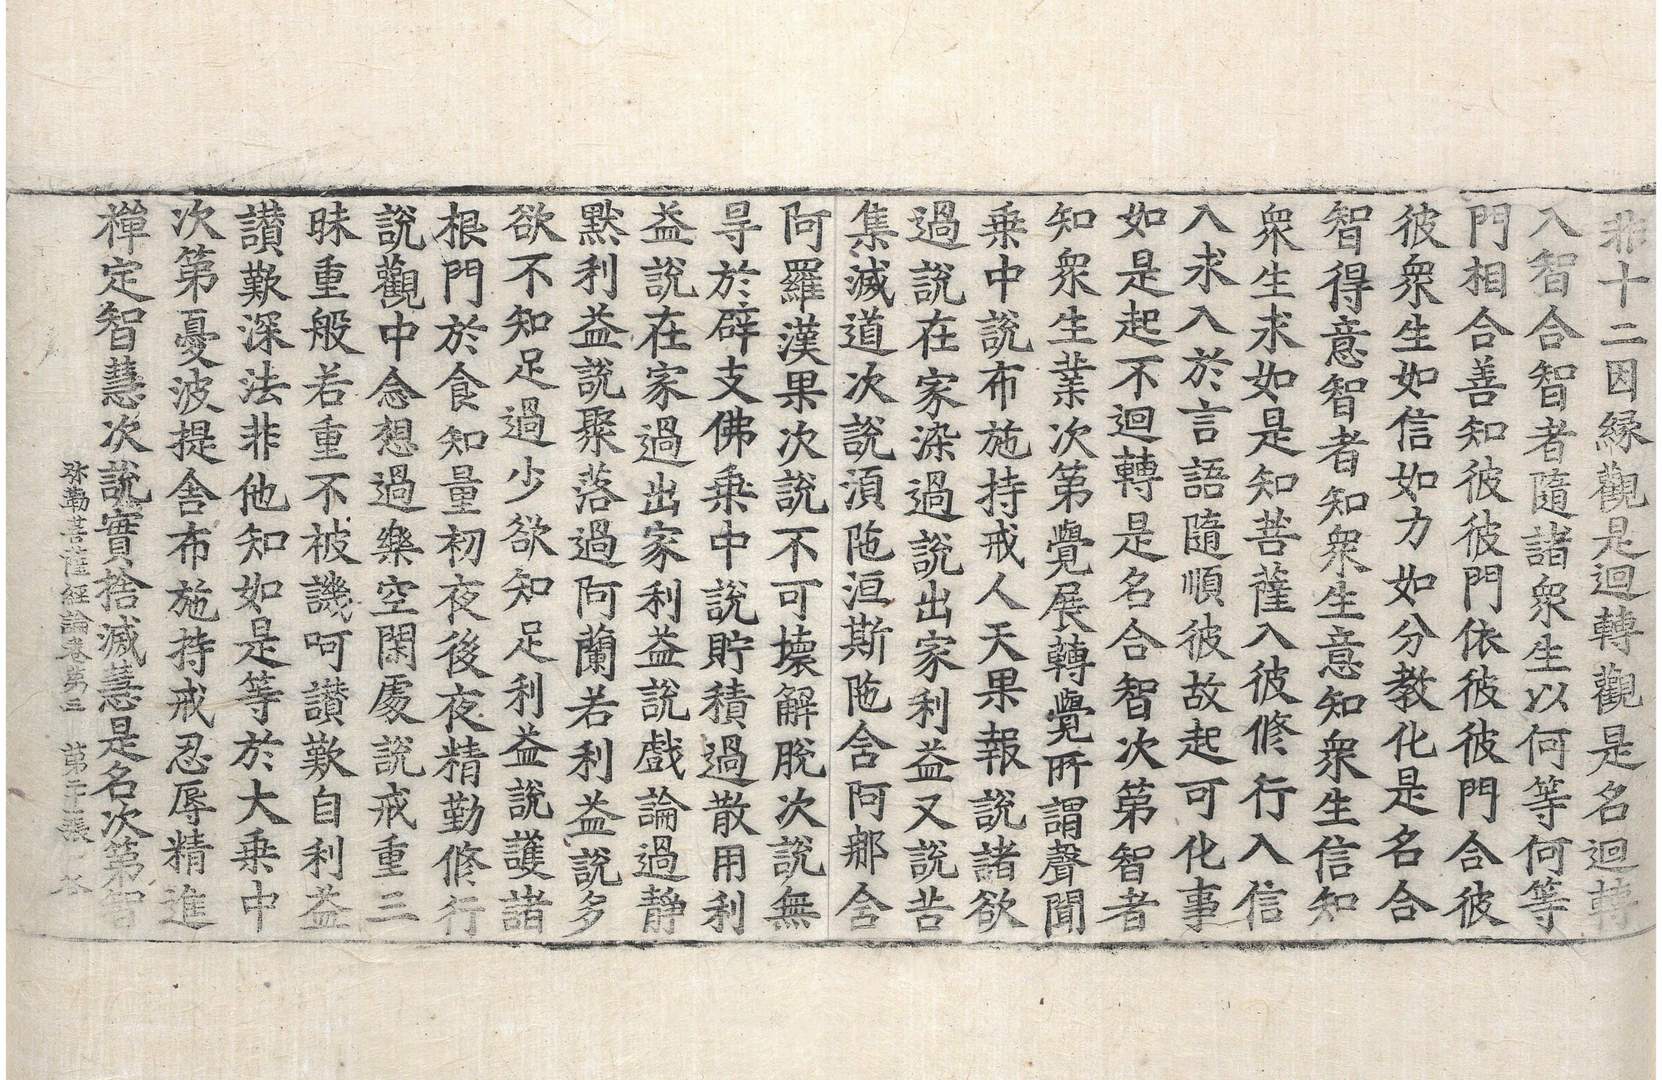 非十二因縁觀是迴轉觀是名迴轉
入智合智者隨諸衆生以何等何等
門相合善知彼彼門依彼彼門合彼
彼衆生如信如力如分教化是名合
智得意智者知衆生意知衆生信知
衆生求如是知菩薩入彼修行入信
入求入於言語隨順彼故起可化事
如是起不迴轉是名合智次第智者
知衆生業次第覺展轉覺所謂聲聞
乗中說布施持戒人天果報說諸欲
過說在家染過說出家利益又說苦
集滅道次說湏陁洹斯陁含阿那含
阿羅漢果次說不可壞解脫次說無
㝵於辟支佛乗中說貯積過散用利
益說在家過出家利益說戲論過静
黙利益說聚落過阿蘭若利益說多
欲不知足過少欲知足利益說護諸
根門於食知量初夜後夜精勤修行
說觀中念想過樂空閑處說戒重三
昧重般若重不被譏呵讃歎自利益
讃歎深法非他知如是等於大乗中
次第憂波提舍布施持戒忍辱精進
禪定智慧次說實捨滅慧是名次第智
弥勒菩薩經論卷第三　第二十張